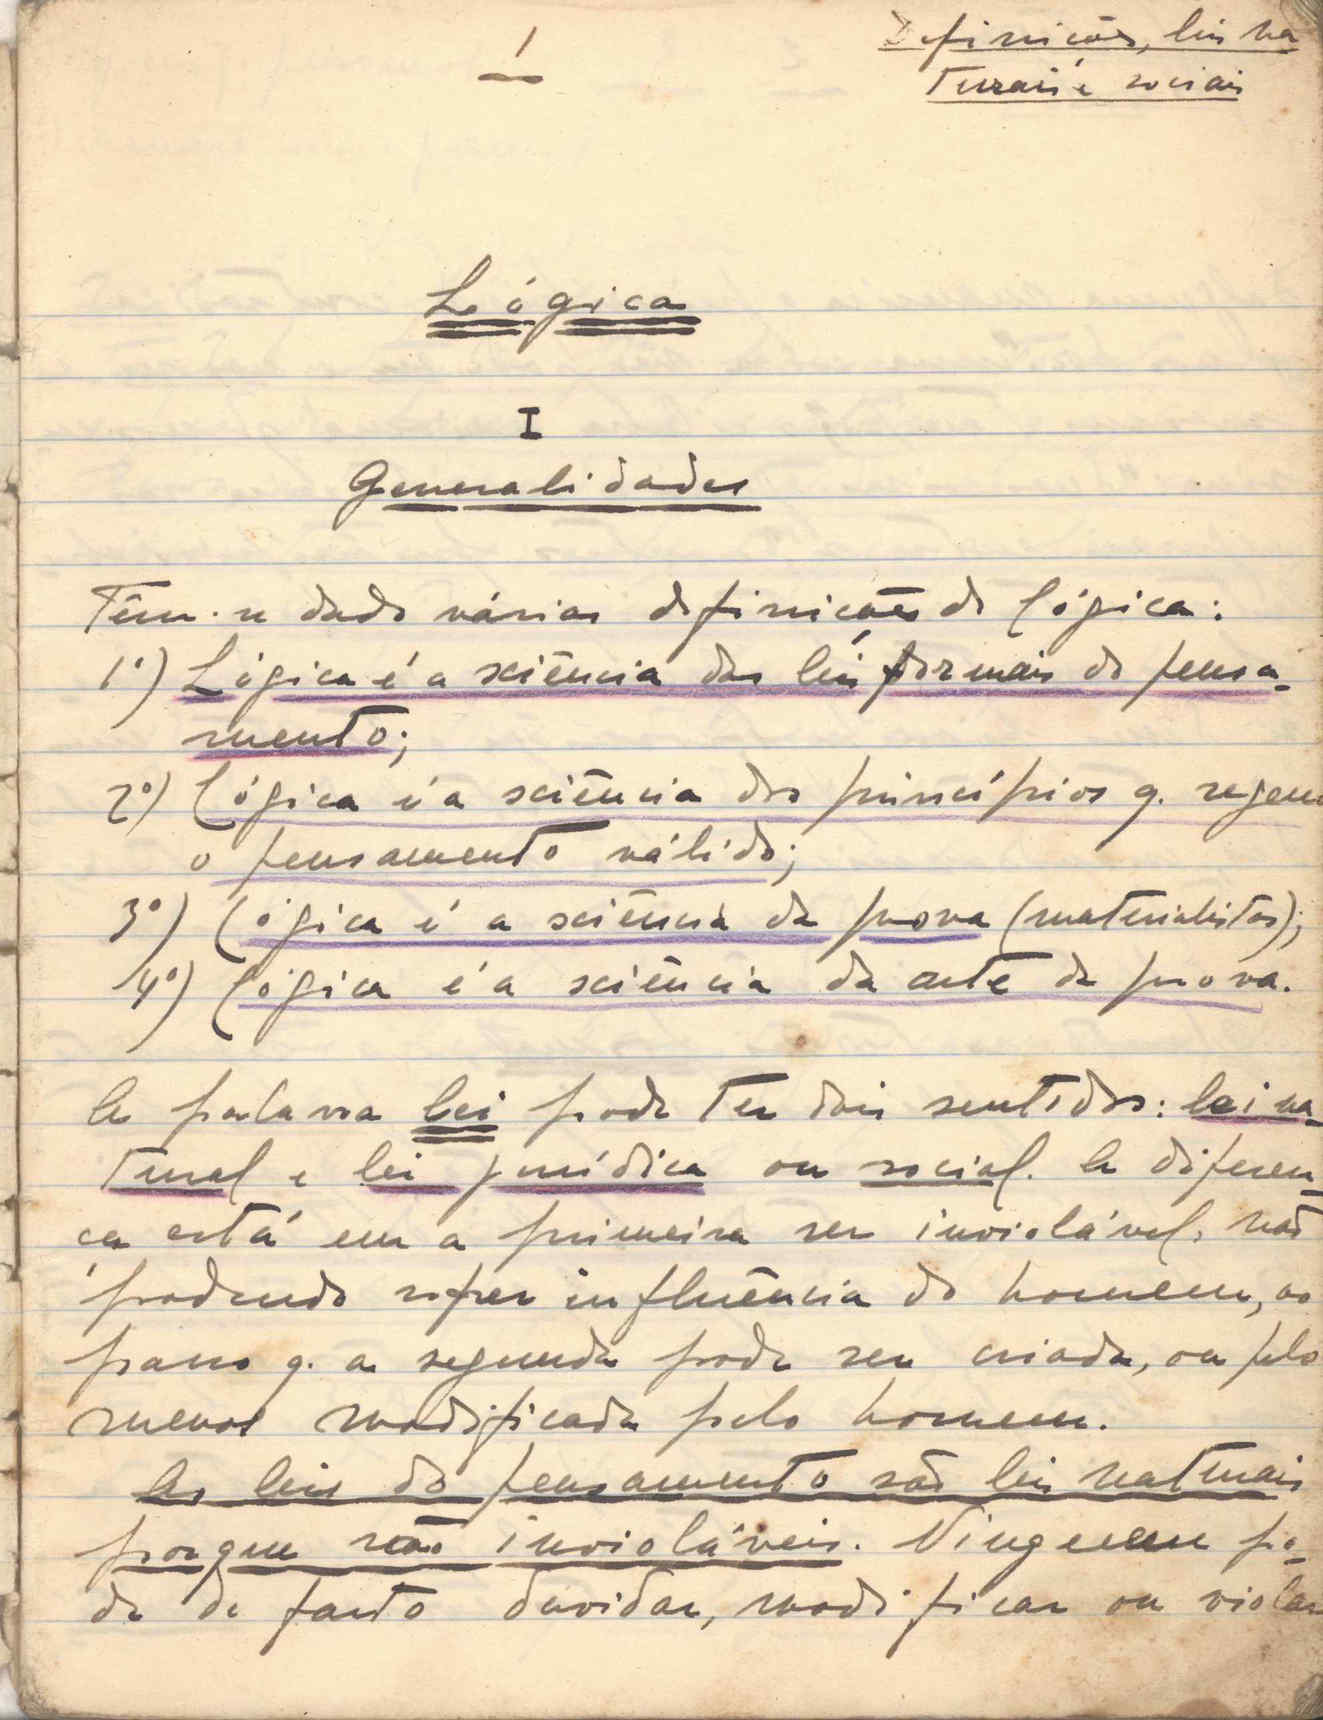 1
Definições, leis na
turais e sociais
Lógica
I
Generalidades
Têm-se dado várias definições de lógica:
1º) Lógica é a sciência das leis formais do pensa-
mento;
2º) Lógica é a sciência dos princípios q. regem
o pensamento válido;
3º) Lógica é a sciência da prova (materialistas);
4º) Lógica é a sciência da arte da prova.
A palavra lei pode ter dois sentidos: lei na-
tural e lei jurídica ou social. A diferen-
ça está em a primeira ser inviolável, não
podendo sofrer influência do homem, ao
passo q. a segunda pode ser criada, ou pelo
menos modificada pelo homem.
As leis do pensamento são leis naturais
porque são invioláveis. Ninguem po-
de de facto duvidar, modificar ou violar